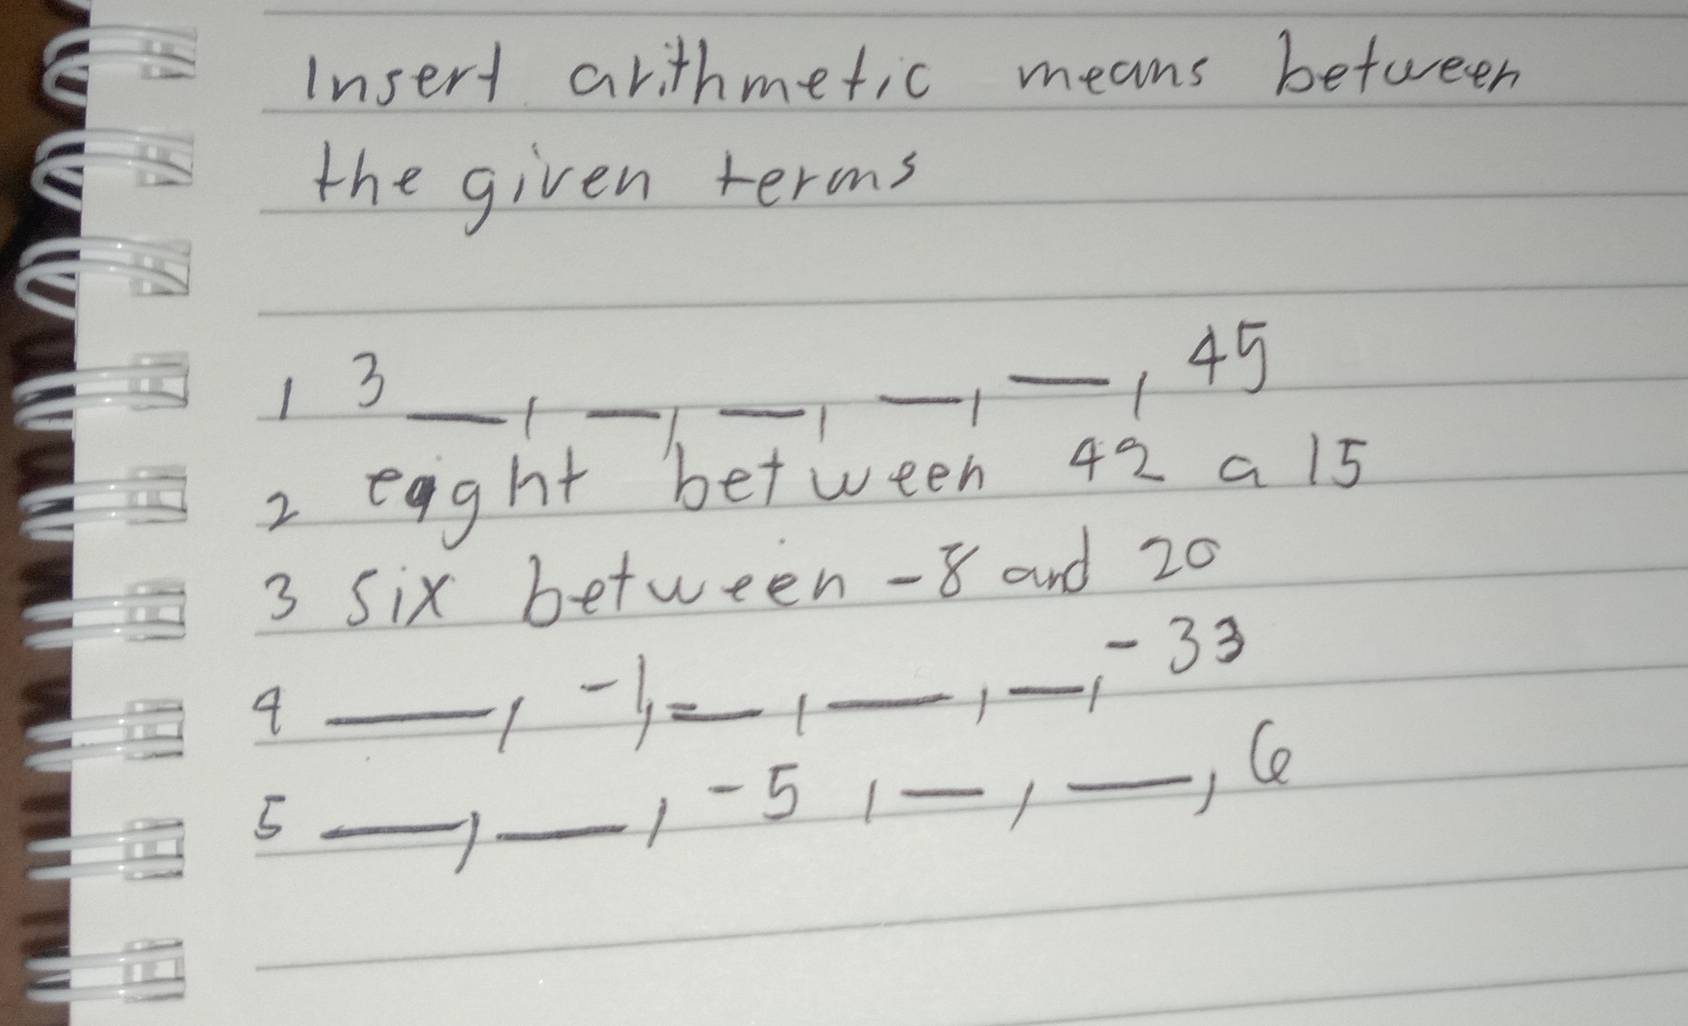 Insert arithmetic means between
the given terms
1 3 __, __, __, __, __, 45
2 eight between 42 a 15
3 six between -8 and 20
4 __, -1, __, __, __, -33
5 __, __, -5, __, __, 6